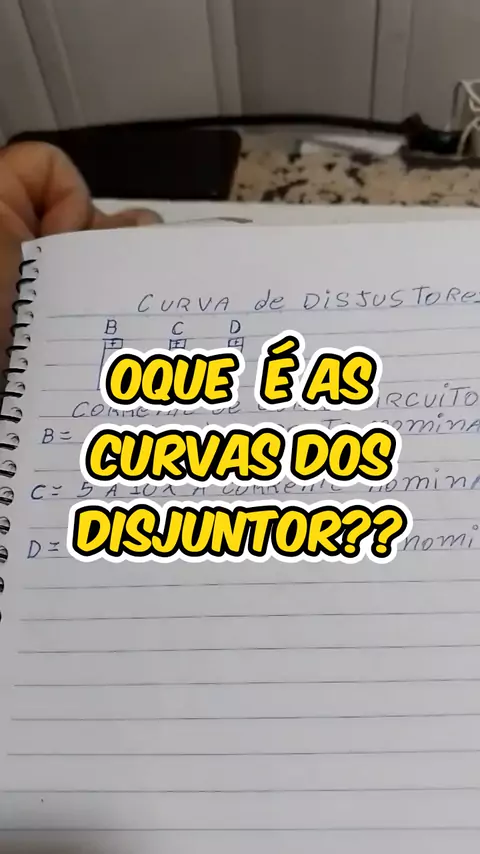 CURVA de DISJUSTORES
B C D
OQUE É AS
CURVAS DOS
DISJUNTOR??
CIRCUITO
B= nominA
C= 5 A 10X A CORRENTE nominA
D= nomi